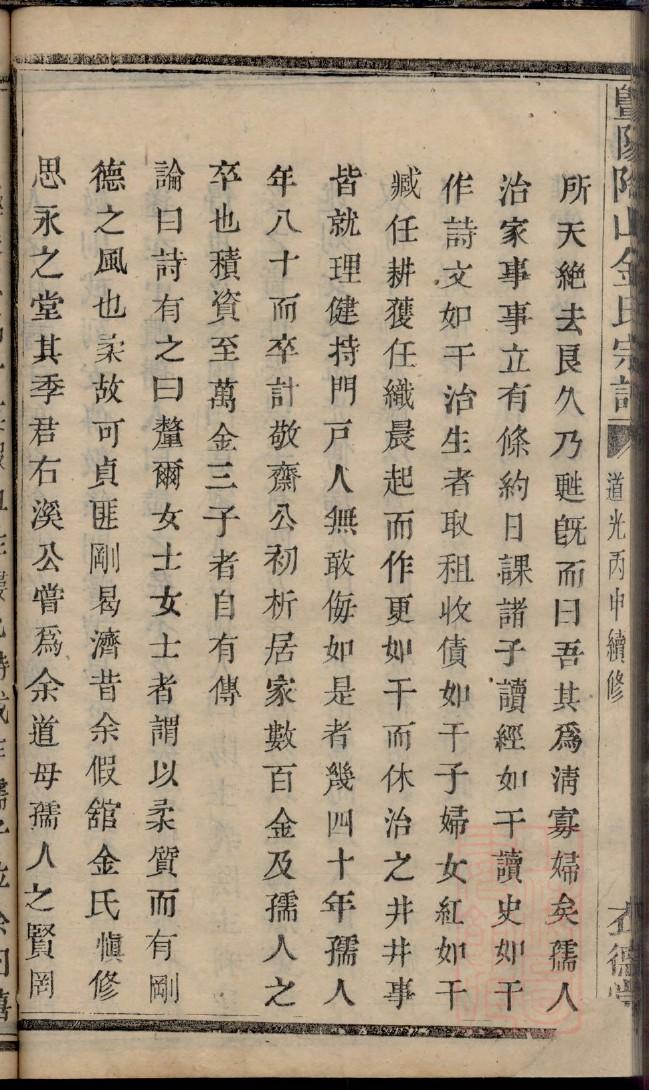 暨陽陶山金氏宗譜
道光丙申續修
所天絶去良久乃甦旣而曰吾其爲淸寡婦矣孺人
治家事事立有條約日課諸子讀經如干讀史如干
作詩文如干治生者取租收債如干子婦女紅如干
臧任耕獲任織晨起而作更如干而休治之井井事
皆就理健持門戸人無敢侮如是者幾四十年孺人
年八十而卒計敬齋公初析居家數百金及孺人之
卒也積資至萬金三子者自有傳
論曰詩有之曰釐爾女士女士者謂以柔質而有剛
德之風也柔故可貞匪剛曷濟昔余假舘金氏愼修
思永之堂其季君右溪公嘗爲余道母孺人之賢罔